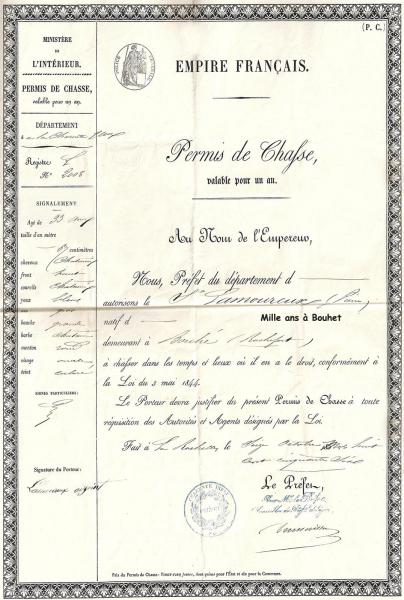 (P. C.)
MINISTÈRE
DE
L'INTÉRIEUR.
PERMIS DE CHASSE,
valable pour un an.
DÉPARTEMENT
de la Charente Infre
Registre
N° 2008
SIGNALEMENT
Agé de 33 ans
taille d'un mètre
67 centimètres
cheveux châtains
front haut
sourcils châtains
yeux bleus
nez
bouche grande
barbe châtain
menton rond
visage ovale
teint coloré
SIGNES PARTICULIERS:
Signature du Porteur:
EMPIRE FRANÇAIS.
Permis de Chasse,
valable pour un an.
Au Nom de l'Empereur,
Nous, Préfet du département d
autorisons le Sr Lamoureux
natif d
Mille ans à Bouhet
demeurant à
à chasser dans les temps et lieux où il en a le droit, conformément à
la Loi du 3 mai 1844.
Le Porteur devra justifier du présent Permis de Chasse à toute
réquisition des Autorités et Agents désignés par la Loi.
Fait à La Rochelle, le seize octobre mil huit
cent cinquante
Le Préfet,
Prix du Permis de Chasse: VINGT-CINQ francs, dont quinze pour l'État et dix pour la Commune.